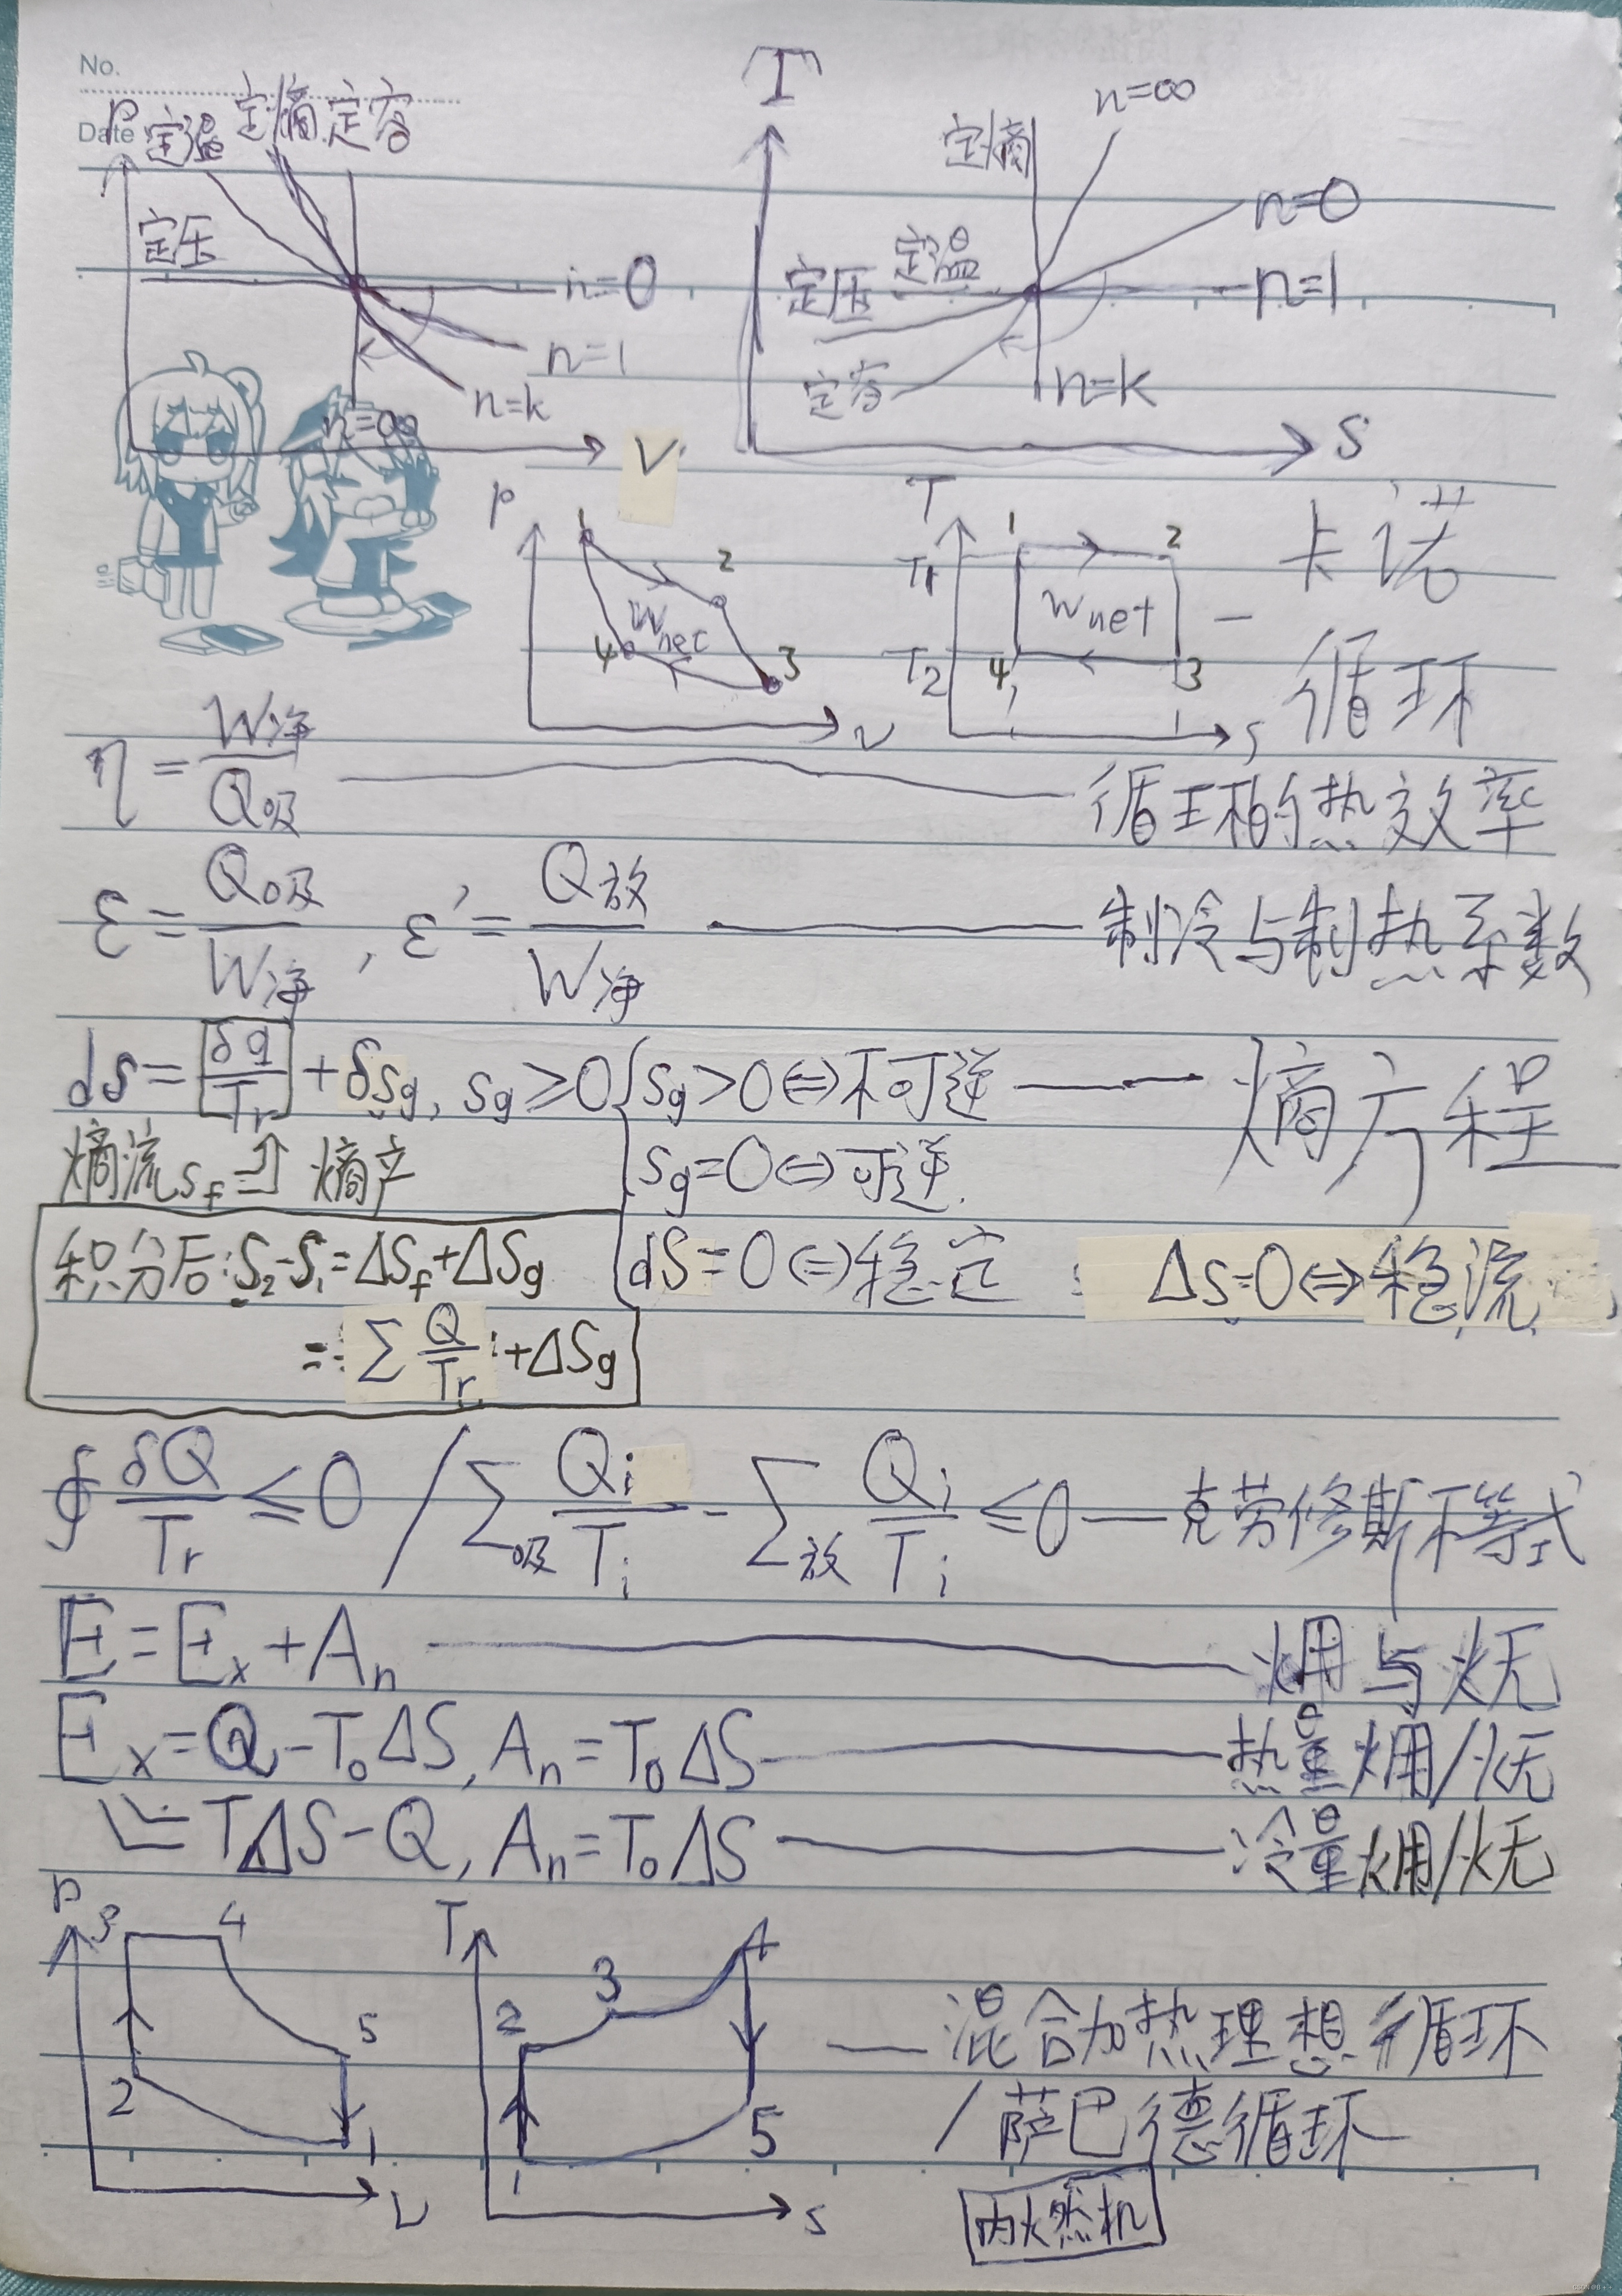 No.
Date
P 定温 定熵 定容
定压
n=0
n=1
n=k
n=∞
V
T
定熵 n=∞
n=0
定压 定温 n=1
定容 n=k
S
P
1
2
3
4
Wnet
v
T
T1
T2
1 2
Wnet
4 3
s
— 卡诺循环
η = W净/Q吸 —— 循环的热效率
ε = Q吸/W净 , ε' = Q放/W净 —— 制冷与制热系数
ds = δq/Tr + δsg, sg ≥ 0 { sg>0⇔不可逆 —— 熵方程
熵流sf 熵产 sg=0⇔可逆
积分后:S2-S1=ΔSf+ΔSg dS=0⇔稳定 ΔS=0⇔稳流
= ∑ Q/Tr +ΔSg
∮ δQ/Tr ≤ 0 / ∑吸 Qi/Ti - ∑放 Qi/Ti ≤ 0 — 克劳修斯不等式
E = Ex + An —— 㶲与㷻
Ex = Q - T0ΔS, An = T0ΔS —— 热量㶲/㷻
= TΔS - Q, An = T0ΔS —— 冷量㶲/㷻
P
3 4
5
2
1
v
T
4
3
2
5
1
s
— 混合加热理想循环
/萨巴德循环
内燃机